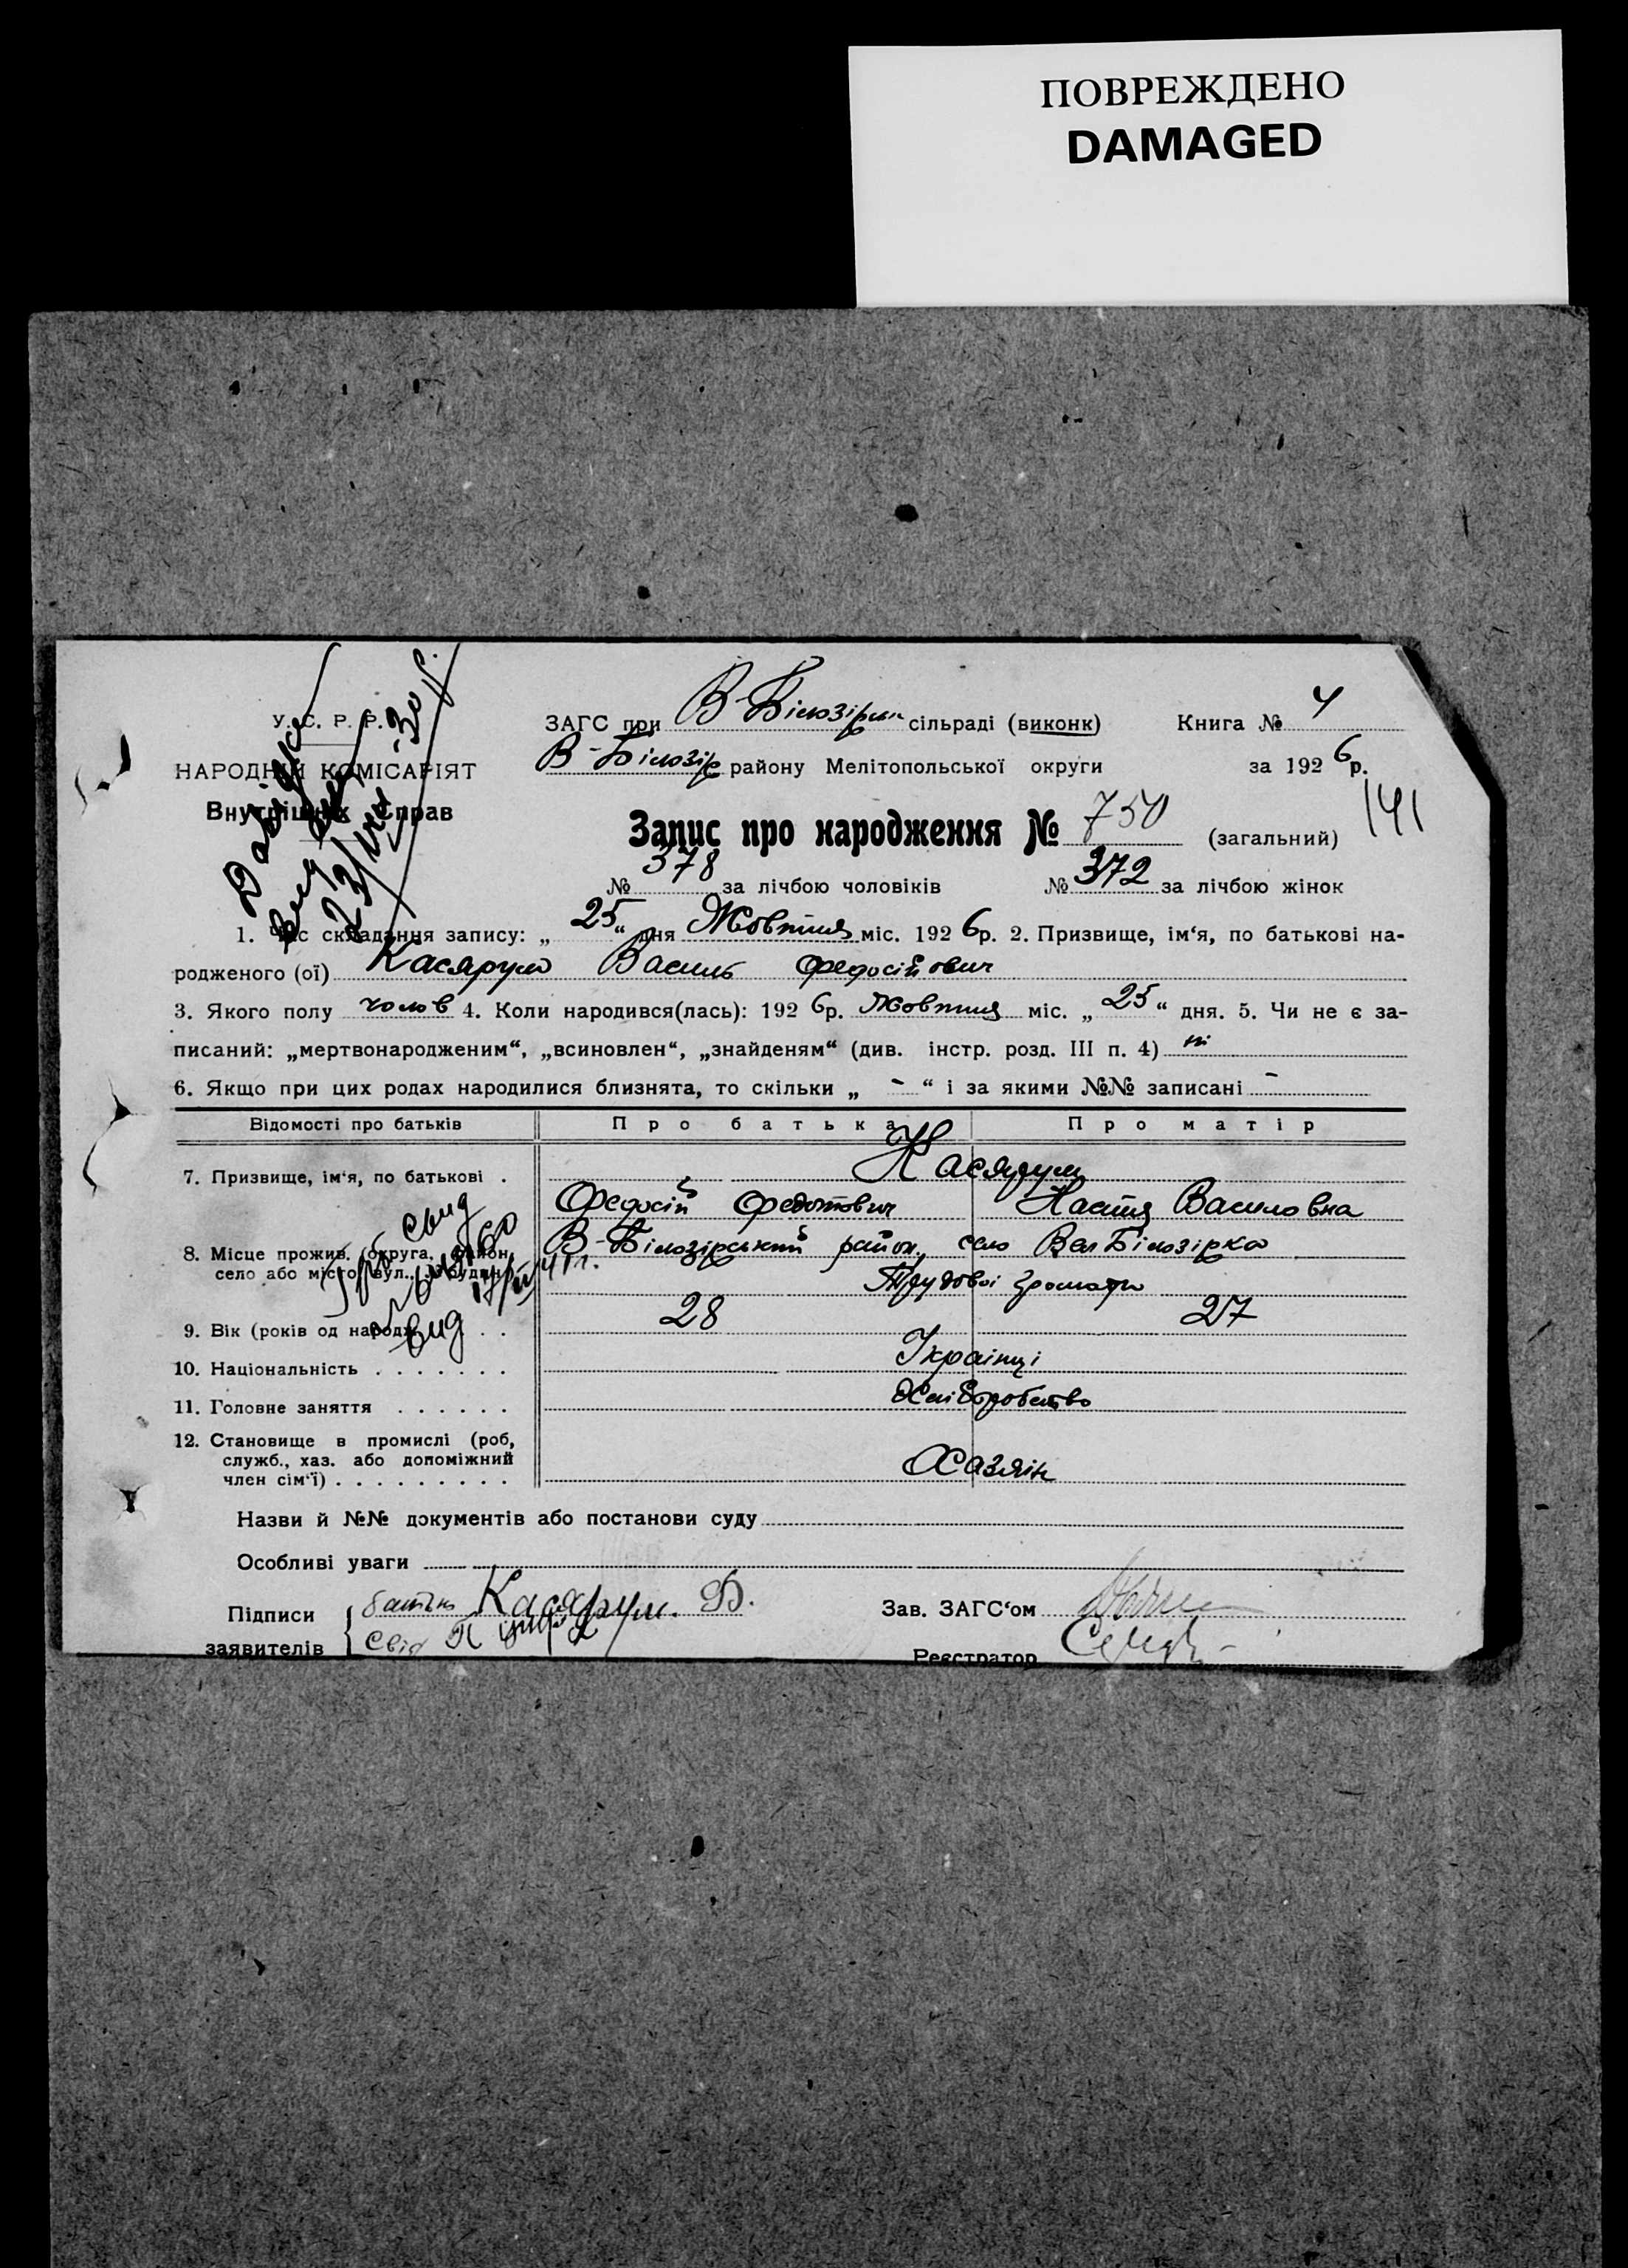 ПОВРЕЖДЕНО
DAMAGED
У. С. Р. Р.
НАРОДНІЙ КОМІСАРІЯТ
Внутрішніх Справ
ЗАГС при В-Білозірськ сільраді (виконк) Книга № 4
В-Білозір району Мелітопольської округи за 1926р.
141
Запис про народження № 750 (загальний)
№ 378 за лічбою чоловіків № 372 за лічбою жінок
1. Час складання запису: „25“ дня Жовтня міс. 1926р. 2. Призвище, ім‘я, по батькові на-
родженого (ої) Касярум Василь Федосійович
3. Якого полу чолов 4. Коли народився(лась): 1926р. Жовтня міс. „25“ дня. 5. Чи не є за-
писаний: „мертвонародженим“, „всиновлен“, „знайденям“ (див. інстр. розд. III п. 4) ні
6. Якщо при цих родах народилися близнята, то скільки „ - “ і за якими №№ записані -
Відомості про батьків Про батька Про матір
7. Призвище, ім‘я, по батькові . Касярум
Федосій Федотович Настя Василовна
8. Місце прожив. (округа, район, В-Білозірський район, село Вел Білозірка
село або місто, вул., № будин.)
Трудової Громади
9. Вік (років од народж. . . 28 27
10. Національність . . . . . . . Українці
11. Головне заняття . . . . . . Хліборобство
12. Становище в промислі (роб,
служб., хаз. або допоміжний
член сім‘ї) . . . . . . . . . Хазяїн
Назви й №№ документів або постанови суду
Особливі уваги
Підписи батько Касярум. Ф. Зав. ЗАГС‘ом
заявителів Свід Реєстратор